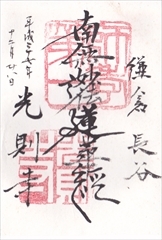 鎌倉 長谷
南無妙法蓮華経
光則寺
平成二十七年
十二月廿八日